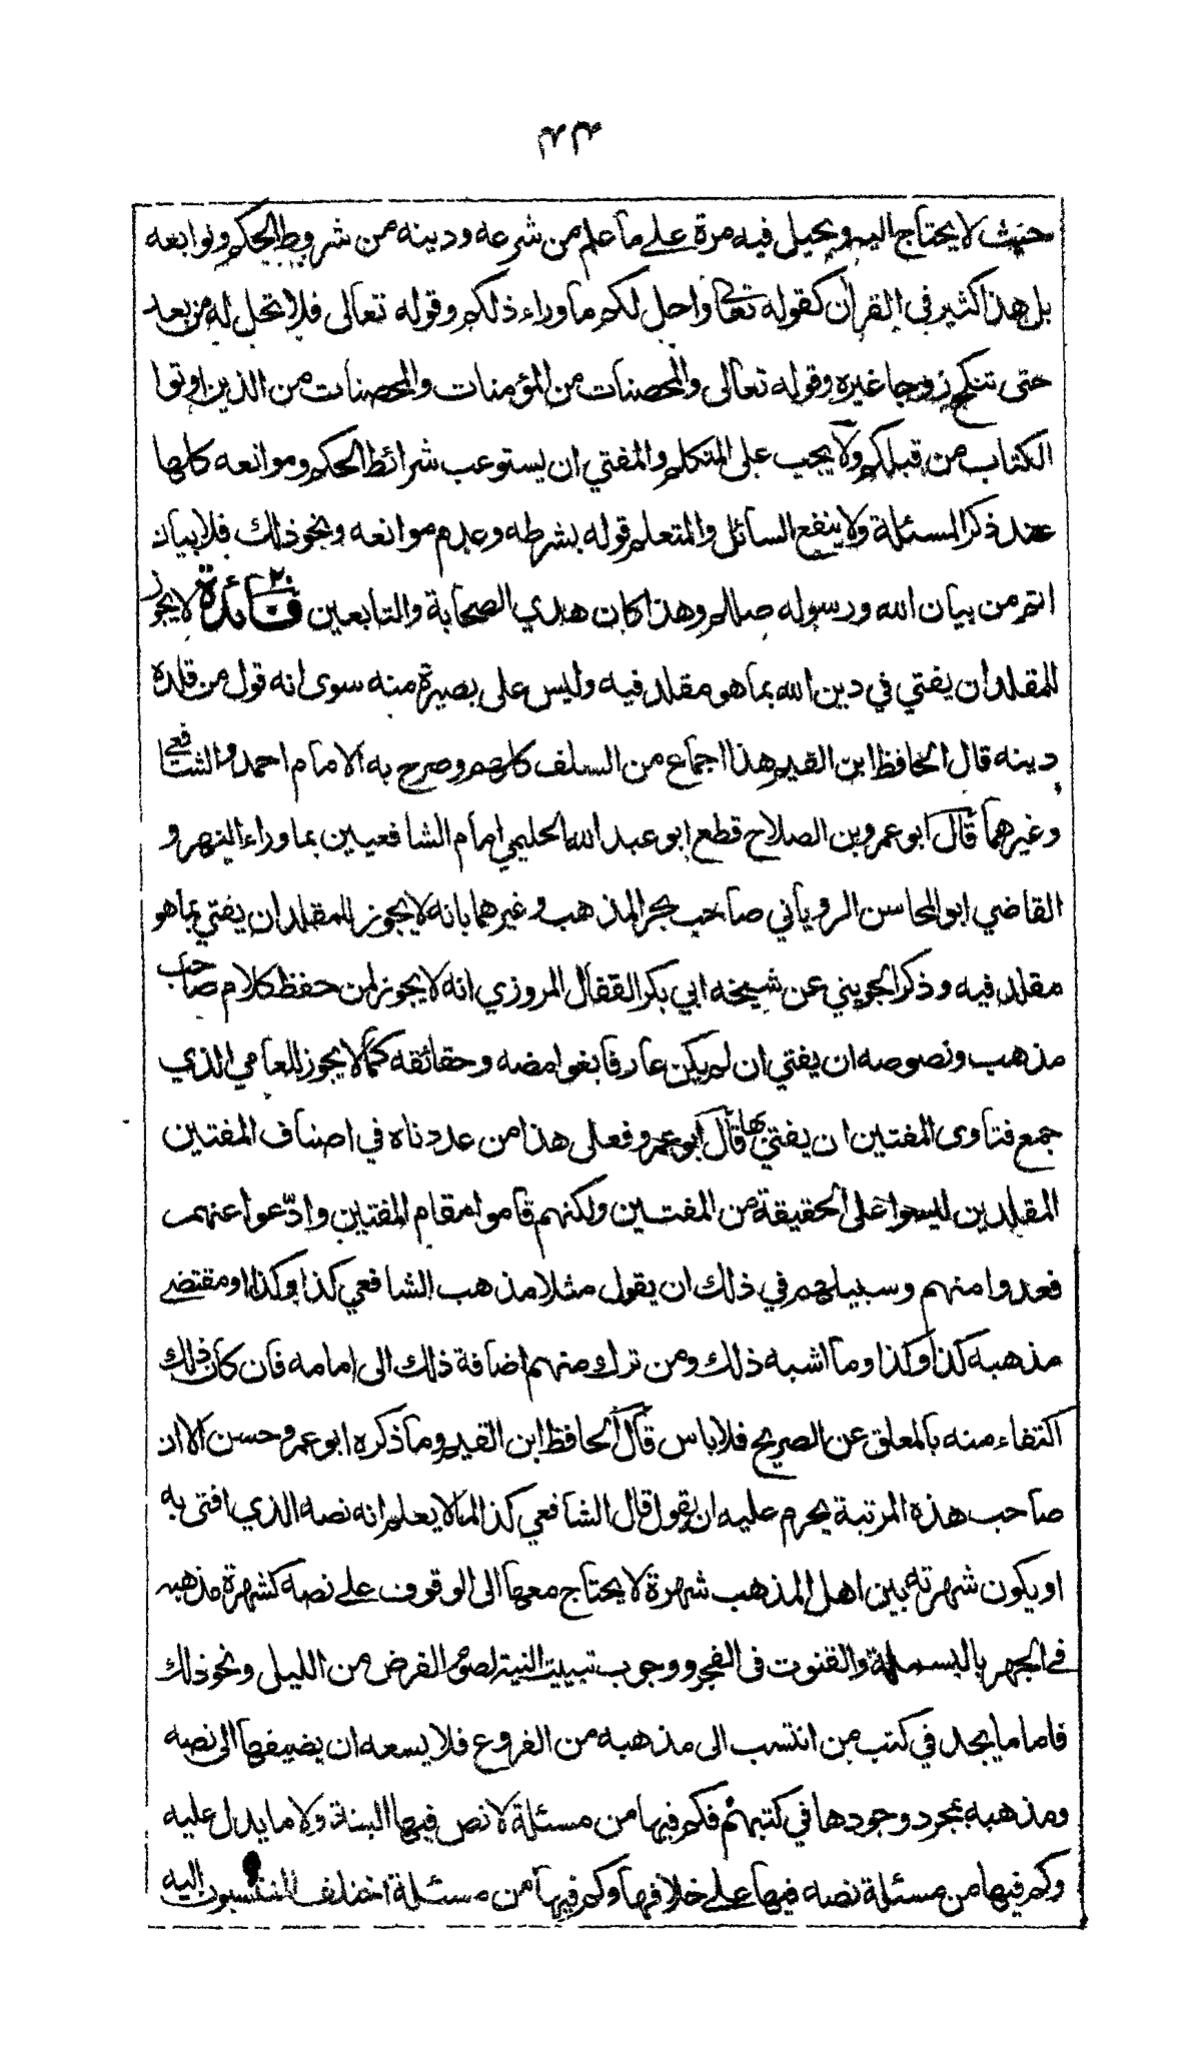 حيث لا يحتاج اليه ويحيل فيه مرة على ما علم من شرعه ودينه من شروط الحكم وتوابعه
بل هذا كثير في القرآن كقوله تعالى واحل لكم ما وراء ذلكم وقوله تعالى فلا تحل له من بعد
حتى تنكح زوجا غيره وقوله تعالى والمحصنات من المؤمنات والمحصنات من الذين اوتوا
الكتاب من قبلكم ولا يجب على المتكلم والمفتي ان يستوعب شرائط الحكم وموانعه كلها
عند ذكر المسئلة ولا ينفع السائل والمتعلم قوله بشرطه وعدم موانعه ونحو ذلك فلا بيان
اتم من بيان الله ورسوله صللم وهذا كان هدي الصحابة والتابعين فائدة ٢٠ لا يجوز
للمقلد ان يفتي في دين الله بما هو مقلد فيه وليس على بصيرة منه سوى انه قول من قلده
دينه قال الحافظ ابن القيم هذا اجماع من السلف كلهم وصرح به الامام احمد والشافعي
وغيرهما قال ابو عمرو بن الصلاح قطع ابو عبد الله الحليمي امام الشافعيين بما وراء النهر و
القاضي ابو المحاسن الروياني صاحب بحر المذهب وغيرهما بانه لا يجوز للمقلد ان يفتي بما هو
مقلد فيه وذكر الجويني عن شيخه ابي بكر القفال المروزي انه لا يجوز لمن حفظ كلام صاحب
مذهب ونصوصه ان يفتي ان لم يكن عارفا بغوامضه وحقائقه كما لا يجوز للعامي الذي
جمع فتاوى المفتين ان يفتي بها قال ابو عمرو فعلى هذا من عددناه في اصناف المفتين
المقلدين ليسوا على الحقيقة من المفتين ولكنهم قاموا مقام المفتين وادّعوا عنهم
فعدوا منهم وسبيلهم في ذلك ان يقول مثلا مذهب الشافعي كذا وكذا او مقتضى
مذهبه كذا وكذا وما اشبه ذلك ومن ترك منهم اضافة ذلك الى امامه فان كان ذلك
اكتفاء منه بالمعلق عن الصريح فلا باس قال الحافظ ابن القيم وما ذكره ابو عمرو حسن الا ان
صاحب هذه المرتبة يحرم عليه ان يقول قال الشافعي كذا لما لا يعلم انه نصه الذي افتى به
او يكون شهرته بين اهل المذهب شهرة لا يحتاج معها الى الوقوف على نصه كشهرة مذهبه
في الجهر بالبسملة والقنوت في الفجر ووجوب تبييت النية لصوم الفرض من الليل ونحو ذلك
فاما ما يجد في كتب من انتسب الى مذهبه من الفروع فلا يسعه ان يضيفها الى نصه
ومذهبه بمجرد وجودها في كتبهم فكم فيها من مسئلة لا نص فيها البتة ولا ما يدل عليه
وكم فيها من مسئلة نصه فيها على خلافها وكم فيها من مسئلة اختلف المنتسبون اليه